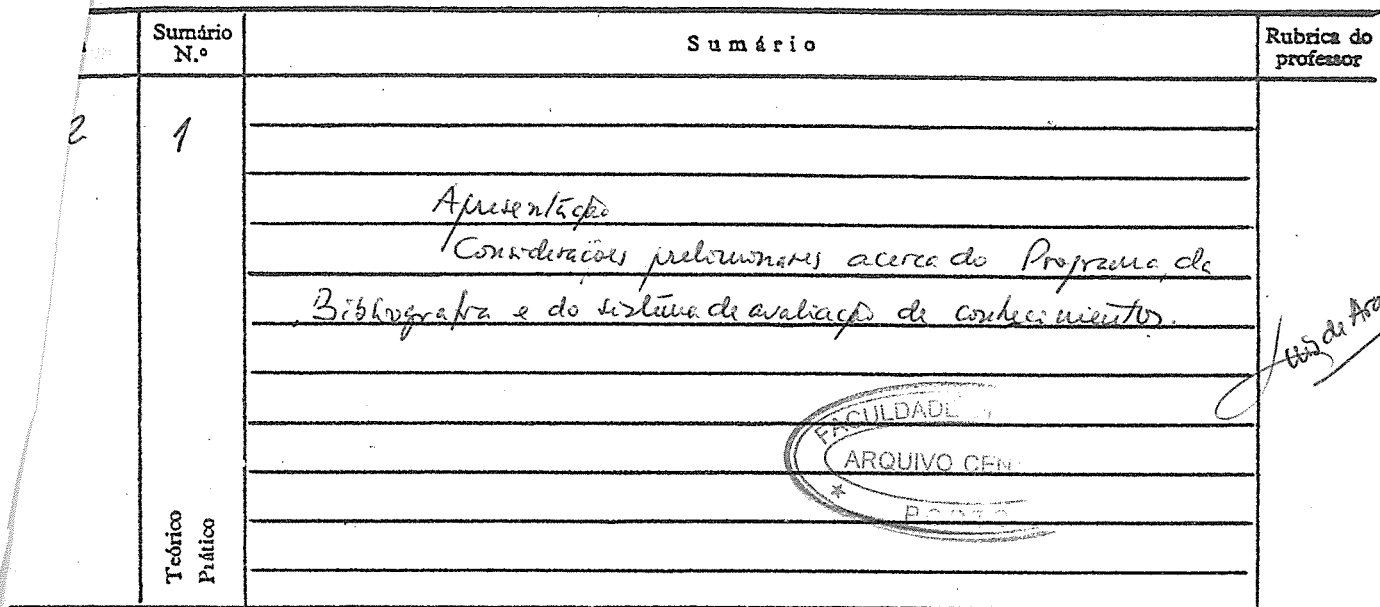 Sumário
N.º
Sumário
Rubrica do
professor
2
1
Apresentação
Considerações preliminares acerca do Programa, da
Bibliografia e do sistema de avaliação de conhecimentos.
Luís de
FACULDADE
ARQUIVO
PORTO
Teórico
Prático